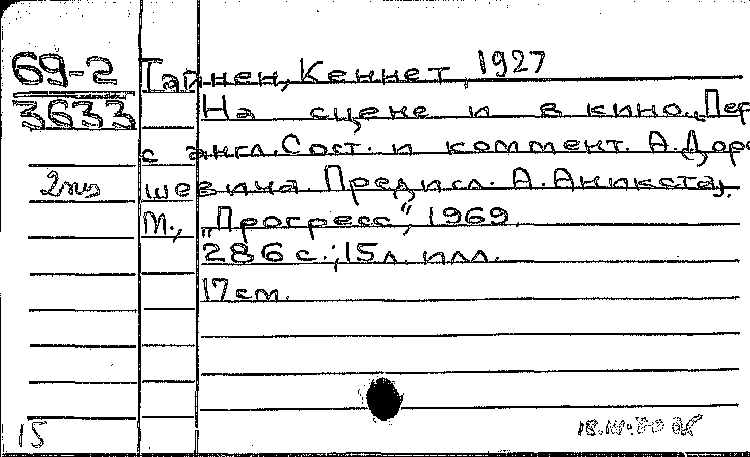 69-2 Тайнен, Кеннет, 1927
3633 На сцене и в кино. Пер.
с англ. Сост. и коммент. А. Доро
2 экз шевича. Предисл. А. Аникста).
М., „Прогресс", 1969.
286 с.; 15 л. илл.
17 см.
15